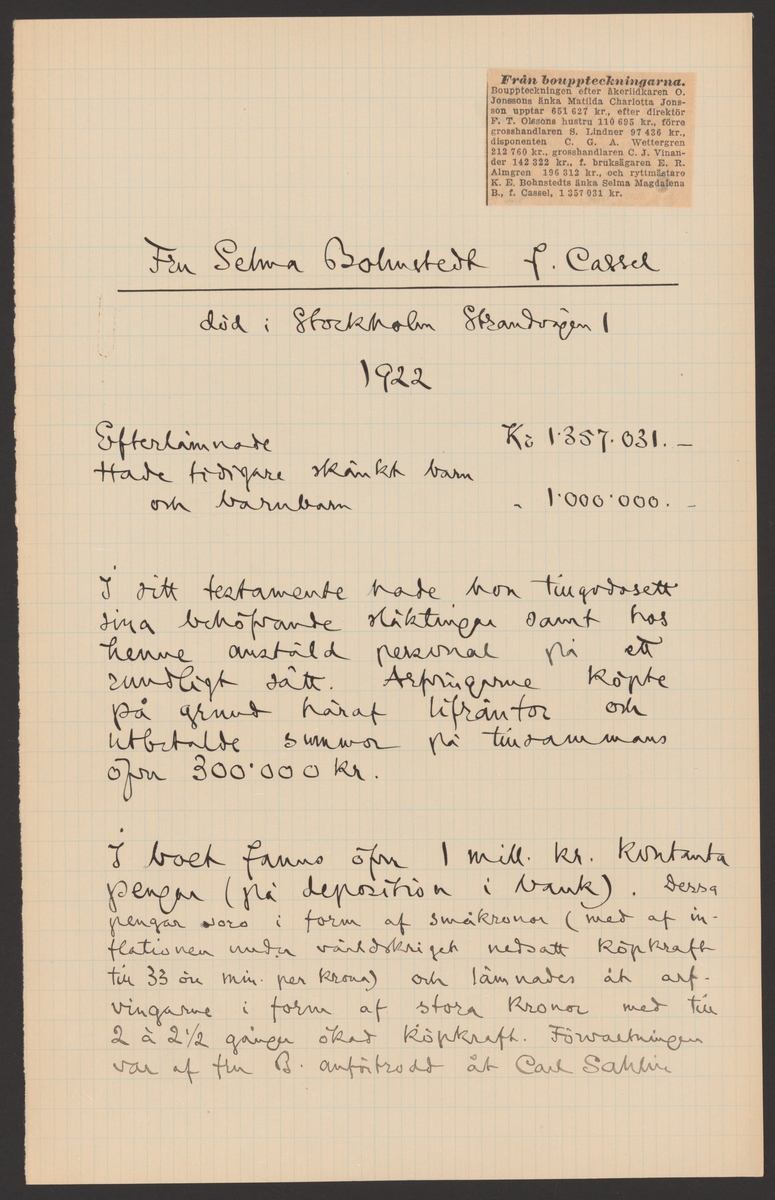 Från bouppteckningarna.
Bouppteckningen efter åkeriidkaren O.
Jonssons änka Matilda Charlotta Jons-
son upptar 651 627 kr., efter direktör
F. T. Olssons hustru 110 695 kr., förre
grosshandlaren S. Lindner 97 436 kr.,
disponenten C. G. A. Wettergren
212 760 kr., grosshandlaren C. J. Vinan-
der 142 322 kr., f. bruksägaren E. R.
Almgren 196 312 kr., och ryttmästare
K. E. Bohnstedts änka Selma Magdalena
B., f. Cassel, 1 357 031 kr.
Fru Selma Bohnstedt f. Cassel
död i Stockholm Strandvägen 1
1922
Efterlämnade Kr 1.357.031.–
Hade tidigare skänkt barn
och barnbarn " 1.000.000.–
I sitt testamente hade hon tillgodosett
sina behöfvande släktingar samt hos
henne anställd personal på ett
rundligt sätt. Arfvingarne köpte
på grund häraf lifräntor och
utbetalde summor på tillsammans
öfver 300.000 kr.
I boet fanns öfver 1 mill. kr. kontanta
pengar (på deposition i bank). Dessa
pengar voro i form af småkronor (med af in-
flationen under världskriget nedsatt köpkraft
till 33 öre min. per krona) och lämnades åt arf-
vingarne i form af stora kronor med till
2 à 2½ gånger ökad köpkraft. Förvaltningen
var af fru B. anförtrodd åt Carl Sahlin